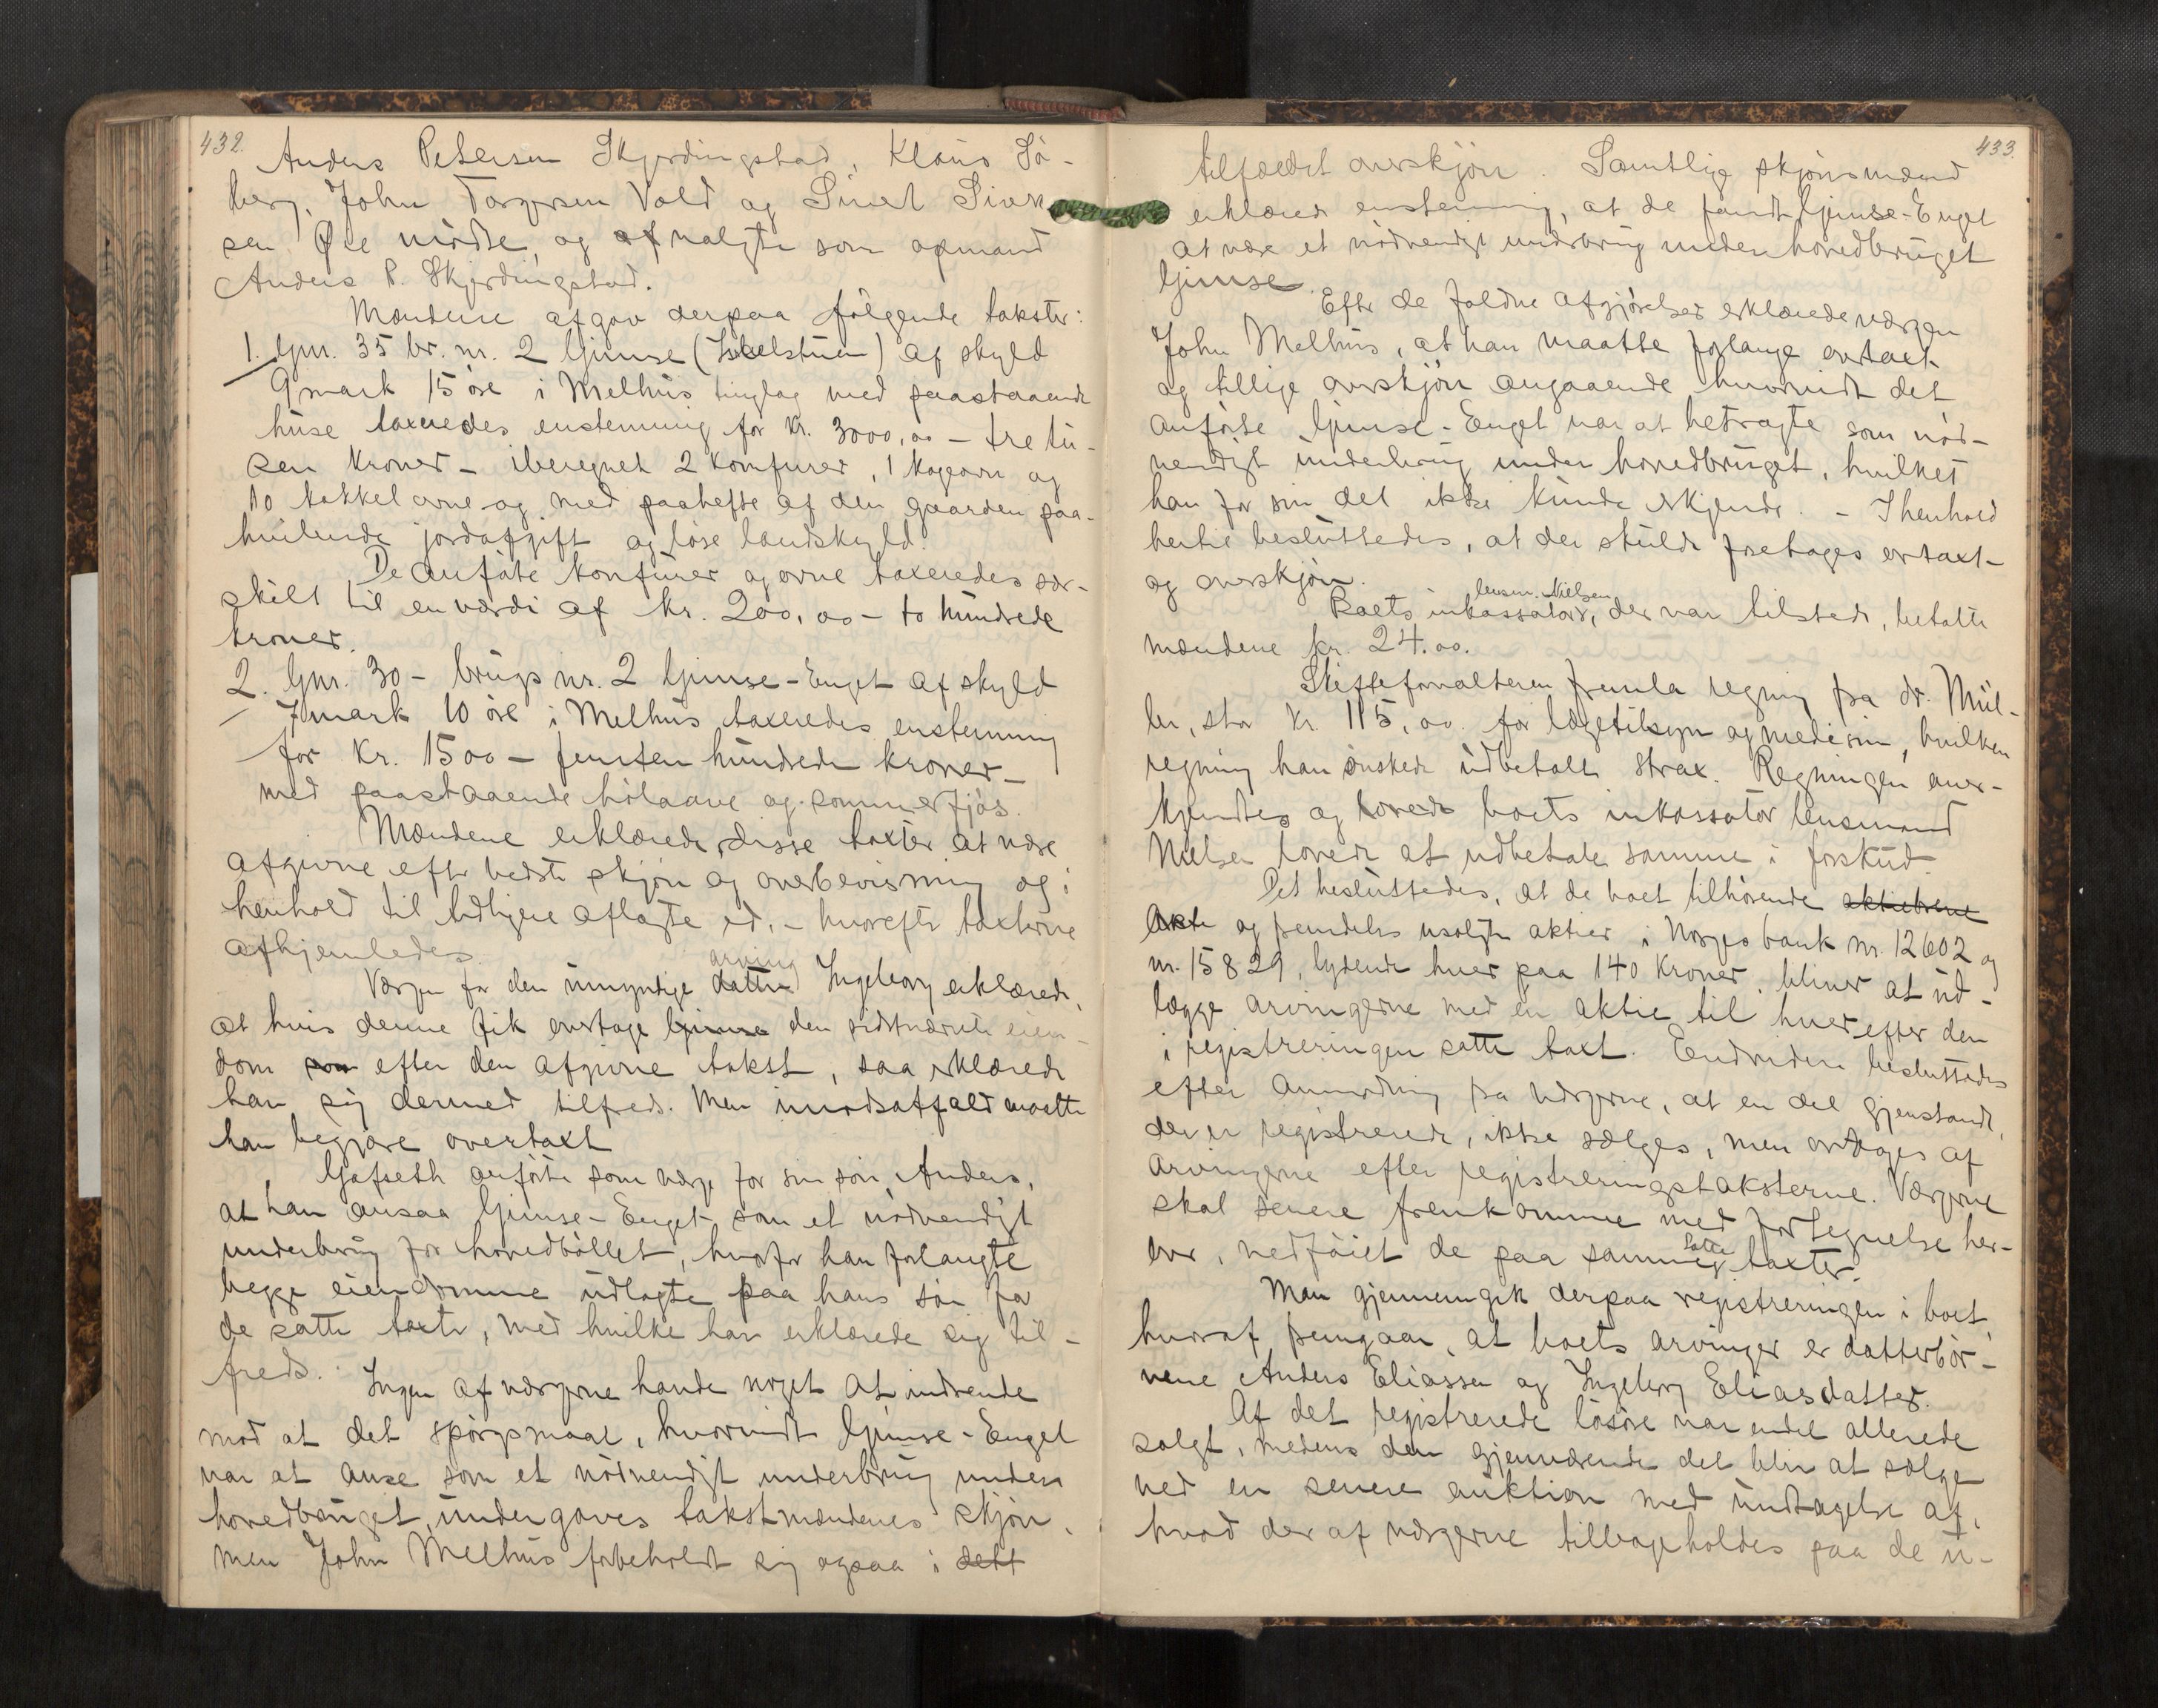 432.
Anders Petersen Skjerdingstad, Klaus Sö-
berg, John Torgersen Vold og Sivert Sivert-
sen Øie mødte, og af valgte som opmand
Anders P. Skjerdingstad.
Mændene afgav derpaa følgende takster:
1. Gnr. 35 br. nr. 2 Gimse () af skyld
9 mark 15 øre i Melhus tinglag med paastaaende
huse taxeredes enstemmig for kr. 3000,00 – tre tu-
sen kroner – iberegnet 2 komfurer, 1 kogeovn og
10 kakkelovne og med paahefte af den gaarden paa-
hvilende jordafgift og løse landskyld.
De anførte komfurer og ovne taxeredes sær-
skilt til en værdi af kr. 200,00 – to hundrede
kroner.
2. Gnr. 30 – brugs nr. 2 Gimse-Enget af skyld
7 mark 10 øre i Melhus taxeredes enstemmig
for kr. 1500 – femten hundrede kroner –
med paastaaende hølaave og sommerfjøs.
Mændene erklærede disse taxter at være
afgivne efter bedste skjøn og overbevisning og i
henhold til tidligere aflagte ed, – hvorefter taxterne
afhjemledes.
arving
Værgen for den umyndige datter Ingeborg erklærede,
at hvis denne fik overtage Gimse den sidstnævnte eien-
dom som efter den afgivne takst, saa erklærede
han sig dermed tilfreds. Men imodsatfald maatte
han begjære overtaxt
Gafseth anførte som værge for sin søn Anders,
at han ansaa Gimse-Enget som et nødvendigt
underbrug for hovedbøllet, hvorfor han forlangte
begge eiendomme udlagte paa hans søn for
de satte taxter, med hvilke han erklærede sig til-
freds.
Ingen af værgerne havde noget at indvende
mod at det spørgsmaal, hvorvidt Gimse-Enget
var at anse som et nødvendigt underbrug under
hovedbruget, undergaves takstmændenes skjøn,
men John Melhus forbeholdt sig ogsaa i dett
433.
tilfældet overskjøn. Samtlige skjønsmænd
erklærede enstemmig, at de fandt Gimse-Enget
at være et nødvendigt underbrug under hovedbruget
Gimse.
Efter de faldne afgjørelser erklærede værgen
John Melhus, at han maatte forlange overtaxt
og tillige overskjøn angaaende hvorvidt det
anførte Gimse-Enget var at betragte som nød-
vendigt underbrug under hovedbruget, hvilket
han for sin del ikke kunde erkjende. – I henhold
hertil besluttedes, at der skulde foretages overtaxt
og overskjøn.
lensm. Nielsen
Boets inkassator, der var tilstede, betalte
mændene kr. 24.00.
Skifteforvalteren fremla regning fra dr. Mül-
ler, stor kr. 115,00 for lægetilsyn og medisin, hvilken
regning han ønskede udbetalt strax. Regningen aner-
kjendtes og lovede boets inkassator lensmand
Nielsen lovede at udbetale samme i forskud.
Det besluttedes, at de boet tilhørende aktiebreve
Akti og fremdeles usolgte aktier i Norges bank nr. 12602 og
nr. 15829, lydende hver paa 140 kroner, bliver at ud-
lægge arvingerne med en aktie til hver efter den
i registreringen satte taxt. Endvidere besluttedes
efter anmodning fra værgerne, at en del gjenstande,
der er registrerede, ikke sælges, men overtages af
arvingerne efter registreringstaksterne. Værgerne
skal senere fremkomme med fortegnelse her-
over, vedføiet de paa samme
satte
taxter.
Man gjennemgik derpaa registreringen i boet
hvoraf fremgaar, at boets arvinger er datterbør-
nene Anders Eliassen og Ingeborg Eliasdatter.
Af det registrerede løsøre var endel allerede
solgt, medens den gjenværende del blir at sælge
ved en senere auktion med undtagelse af,
hvad der af værgerne tilbageholdes paa de u-